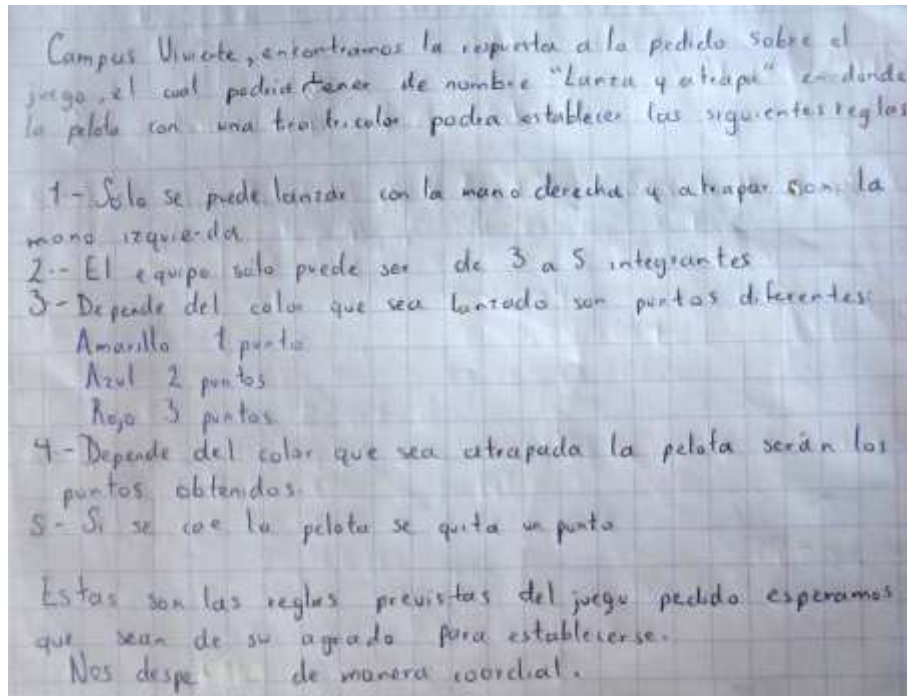 Campus Viviente, encontramos la respuesta a lo pedido sobre el
juego, el cual podria tener de nombre "Lanza y atrapa" en donde
la pelota con una tricolor podra establecer las siguientes reglas
1- Solo se puede lanzar con la mano derecha y atrapar con la
mano izquierda
2.- El equipo solo puede ser de 3 a 5 integrantes
3- Depende del color que sea lanzado son puntos diferentes:
Amarillo 1 punto
Azul 2 puntos
Rojo 3 puntos
4- Depende del color que sea atrapada la pelota serán los
puntos obtenidos.
5- Si se cae la pelota se quita un punto
Estas son las reglas previstas del juego pedido esperamos
que sean de su agrado para establecerse.
Nos despe de manera coordial.